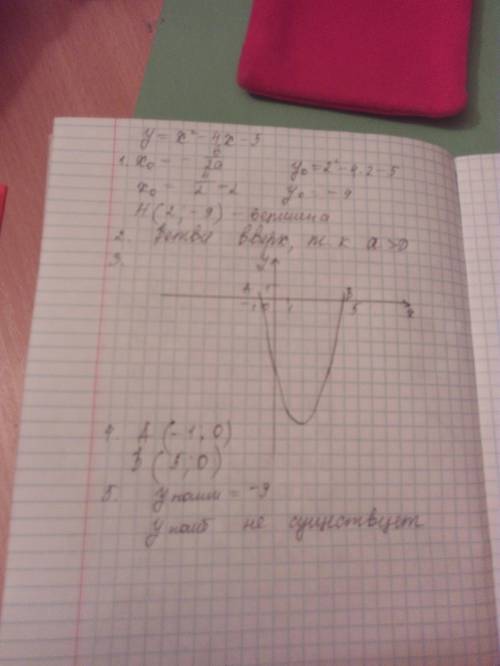 y = x² - 4x - 5
1. x₀ = - b/2a y₀ = 2² - 4·2 - 5
x₀ = 4/2 = 2 y₀ = -9
H(2; -9) - вершина
2. Ветви вверх, т к a > 0
3. y
A 1 B
-1 0 1 5 x
4. A (-1; 0)
B (5; 0)
5. y наим = -9
y наиб не существует